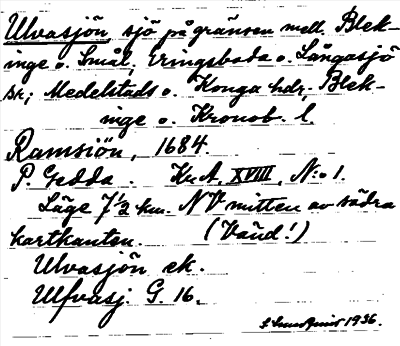 Ulvasjön sjö på gränsen mell. Blek-
inge o. Smål; Eringsboda o. Långasjö
sk; Medelstads o. Konga hdr, Blek-
inge o. Kronob. l.
Ramsiön, 1684.
P. Gedda. Kr.A. XVIII, N:o 1.
Läge 7 1/2 km. NV mitten av södra
kartkanten. (Vänd!)
Ulvasjön ek.
Ulfvasj. G. 16.
1936.